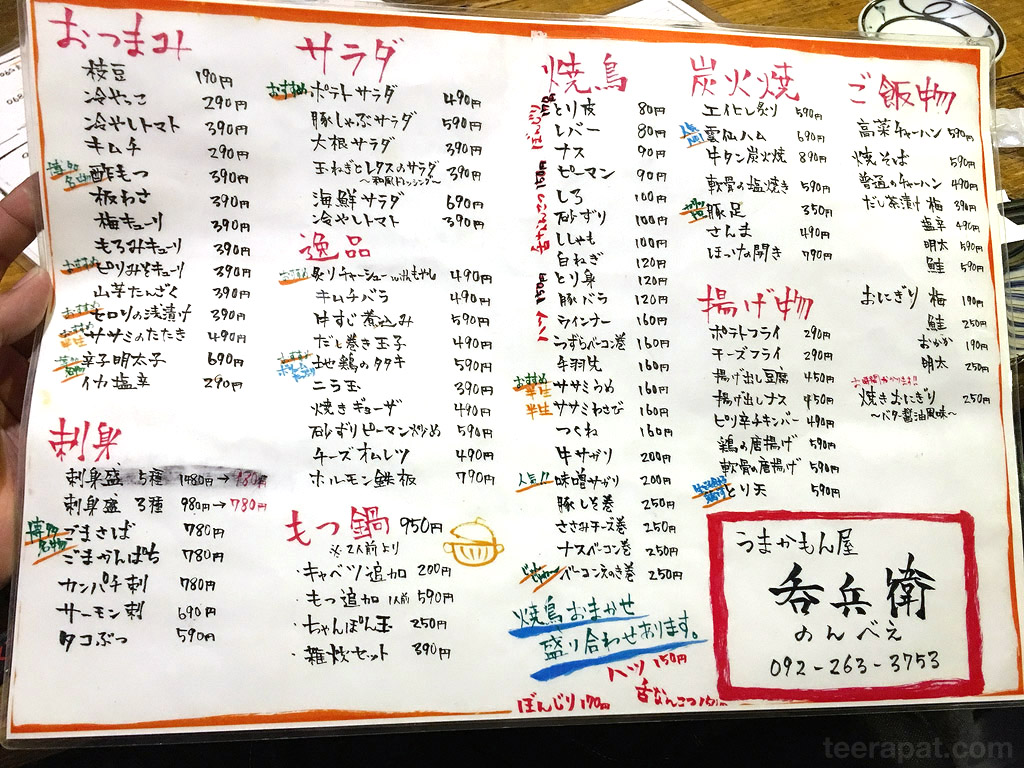 おつまみ
枝豆 190円
冷やっこ 290円
冷やしトマト 390円
キムチ 290円
博多名物 酢もつ 390円
板わさ 390円
梅キューリ 390円
もろみキューリ 390円
おすすめ ピリみそキューリ 390円
山芋たんざく 390円
おすすめ セロリの浅漬け 390円
おすすめ 半生 ササミのたたき 490円
博多名物 辛子明太子 690円
イカ塩辛 290円
刺身
刺身盛 5種 1480円→
刺身盛 3種 980円→780円
博多名物 ごまさば 780円
ごまかんぱち 780円
カンパチ刺 780円
サーモン刺 690円
タコぶつ 590円
サラダ
おすすめ ポテトサラダ 490円
豚しゃぶサラダ 590円
大根サラダ 390円
玉ねぎとレタスのサラダ 390円
〜和風ドレッシング〜
海鮮サラダ 690円
冷やしトマト 390円
逸品
おすすめ 炙りチャーシューwithもやし 490円
キムチバラ 490円
牛すじ煮込み 590円
だし巻き玉子 490円
地鶏のタタキ 590円
ニラ玉 390円
焼きギョーザ 490円
砂ずりピーマン炒め 590円
チーズオムレツ 490円
ホルモン鉄板 790円
もつ鍋 950円
※2人前より
・キャベツ追加 200円
・もつ追加 1人前 590円
・ちゃんぽん玉 250円
・雑炊セット 390円
焼鳥
とり皮 80円
レバー 80円
ナス 90円
ピーマン 90円
しろ 100円
砂ずり 100円
ししゃも 100円
白ねぎ 120円
とり身 120円
豚バラ 120円
ウインナー 160円
うずらベーコン巻 160円
手羽先 160円
おすすめ 半生 ササミうめ 160円
半生 ササミわさび 160円
つくね 160円
牛サガリ 200円
人気!! 味噌サガリ 200円
豚しそ巻 250円
ささみチーズ巻 250円
ナスベーコン巻 250円
ベーコンえのき巻 250円
焼鳥おまかせ
盛り合わせおります。
ハツ 150円
ぼんじり 170円
舌なんこつ
炭火焼
エイヒレ炙り 590円
雲仙ハム 690円
牛タン炭火焼 890円
軟骨の塩焼き 590円
豚足 350円
さんま 490円
ほっけの開き 790円
揚げ物
ポテトフライ 290円
チーズフライ 290円
揚げ出し豆腐 450円
揚げ出しナス 450円
ピリ辛チキンバー 490円
鶏の唐揚げ 590円
軟骨の唐揚げ 590円
とり天 590円
ご飯物
高菜チャーハン 590円
焼そば 590円
普通のチャーハン 490円
だし茶漬け 梅 390円
塩辛 490円
明太 590円
鮭 590円
おにぎり 梅 190円
鮭 250円
おかか 190円
明太 250円
お時間かかります!!
焼きおにぎり 250円
〜バター醤油風味〜
うまかもん屋
呑兵衛
のんべえ
092-263-3753
teerapat.com